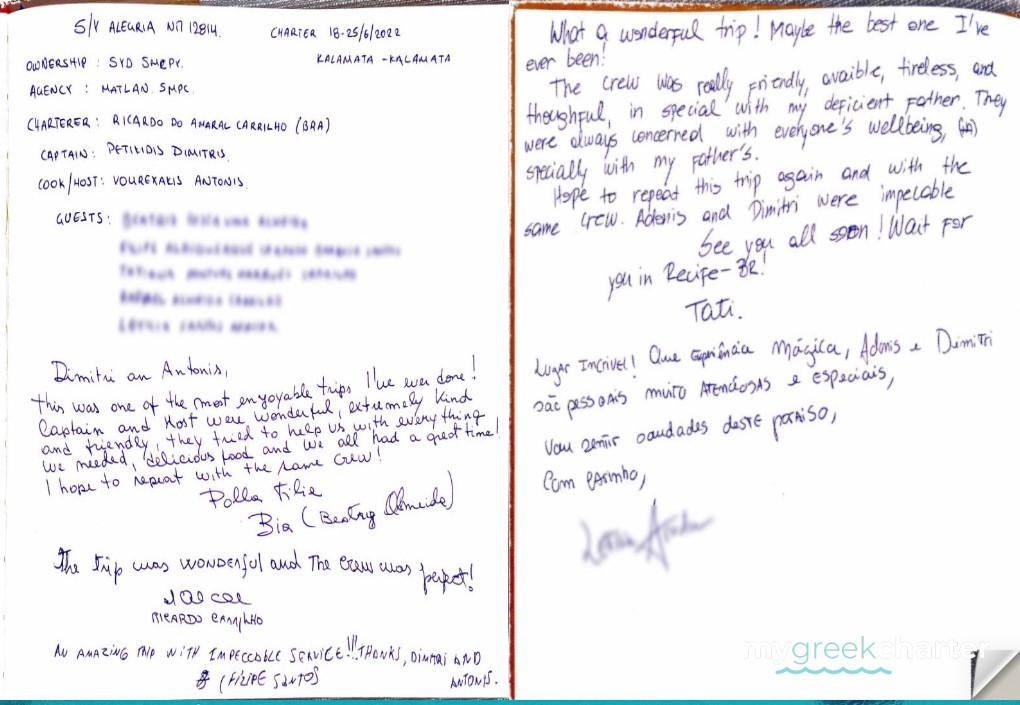 S/Y ALEGRIA NΠ 12814.
CHARTER 18-25/6/2022
KALAMATA - KALAMATA
OWNERSHIP : SYD SMCPY.
AGENCY : MATLAN SMPC.
CHARTERER : RICARDO DO AMARAL CARRILHO (BRA)
CAPTAIN : PETIKIDIS DIMITRIS.
COOK/HOST: VOUREXAKIS ANTONIS.
GUESTS:
Dimitri an Antonis,
This was one of the most enyoyable trips I've ever done!
Captain and Host were wonderful, extremely kind
and friendly, they tried to help us with everything
we needed, delicious food and we all had a great time!
I hope to repeat with the same crew!
Polla Filia
Bia (Beatriz Almeida)
The trip was WONDERFUL and The crew was perfect!
RICARDO CARRILHO
AN AMAZING TRIP WITH IMPECCABLE SERVICE!!! THANKS, DIMITRI AND
ANTONIS.
(FILIPE SANTOS)
What a wonderful trip! Maybe the best one I've
ever been!
The crew was really friendly, avaible, tireless, and
thoughful, in special with my deficient father. They
were always concerned with everyone's wellbeing,
specially with my father's.
Hope to repeat this trip again and with the
same crew. Adonis and Dimitri were impecable
See you all soon! Wait for
you in Recife-BR!
Tati.
Lugar Incrivel! Que Experiência Mágica, Adonis e Dimitri
são pessoais muito Atenciosas e especiais,
Vou sentir saudades deste paraiso,
Com carinho,
mygreekcharter